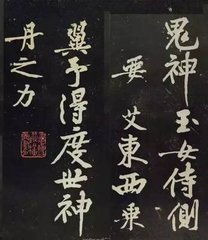 鬼神玉女侍側
要 艾東西乘
翼予得度世神
丹之力